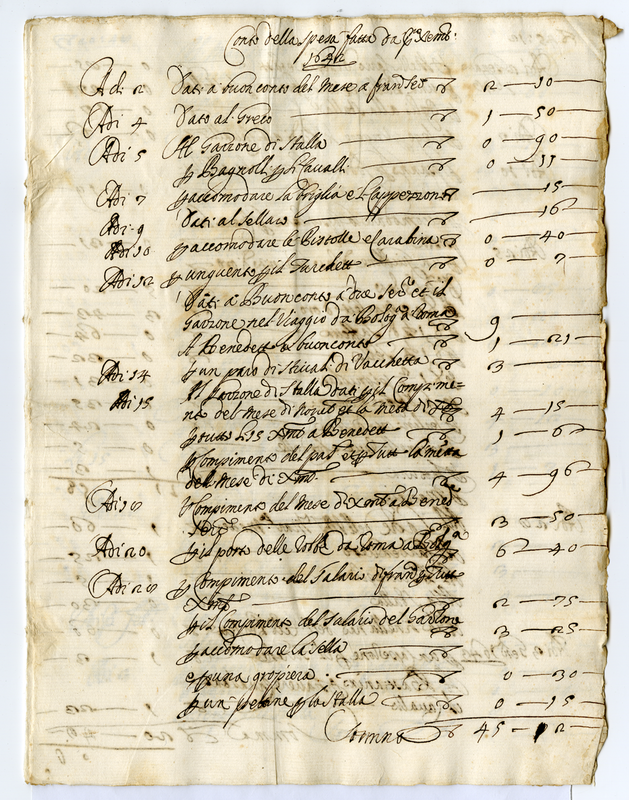 Conto della spesa fatta da Xemb:
1642
Adi 2 Dati a buon conto del Mese a 2 — 10
Adi 4 Dato al Greco 1 — 50
Adi 5 Al Garzone di Stalla 0 — 90
p Bagnoli p li Cavalli 0 — 11
Adi 7 p accomodare la briglia e 15
Adi 9 Dati al sellaro 16
Adi 10 p accomodare le Pistolle e Carabina 0 — 40
Adi 12 p unguento p il 0 — 7
Dati a Buon conto a due et il
Garzone nel Viaggio da Bolog a Roma 9
A Benedetto a buon conto 1 — 21
Adi 14 p un paro di stivali di Vacchetta 3
Adi 15 Al Garzone di Stalla dati p il Compime=
nto del Mese di et la metà di 4 — 15
p tutto li 15 Xmb a Benedett 1 — 6
p Compimento del et p tutt la metà
del Mese di Xmb 4 — 96
Compimento del Mese di Xmb a Bened
3 — 50
Adi 20 p il porto delle robbe da Roma a Bolog 6 — 40
p Compimento del Salario p tutt
Xmb 2 — 75
p il Compimento del Salario del Garzone 3 — 25
p accomodare la Sella
e p una gropiera 0 — 30
p un p la Stalla 0 — 15
Somma 45 — 2